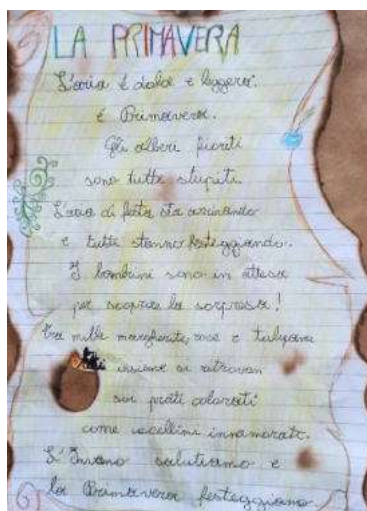 LA PRIMAVERA
L'aria è dolce e leggera:
è Primavera.
Gli alberi fioriti
sono tutti stupiti.
L'aria di festa sta arrivando
e tutti stanno festeggiando.
I bambini sono in attesa
per scoprire la sorpresa!
Tra mille margherite, rose e tulipani
insieme si ritrovan
sui prati colorati
come uccellini innamorati.
L'Inverno salutiamo e
la Primavera festeggiamo.